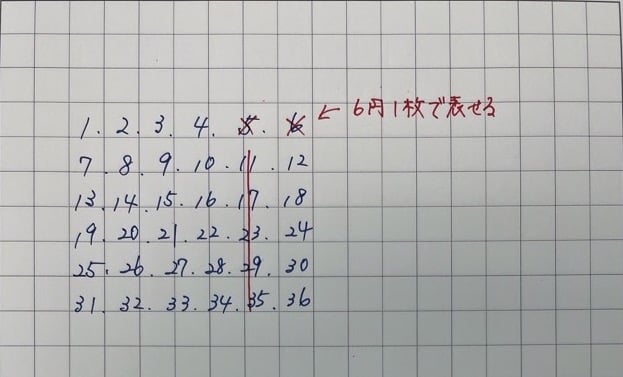 1. 2. 3. 4. 5. 6 ← 6円1枚で表せる
7. 8. 9. 10. 11. 12
13. 14. 15. 16. 17. 18
19. 20. 21. 22. 23. 24
25. 26. 27. 28. 29. 30
31. 32. 33. 34. 35. 36